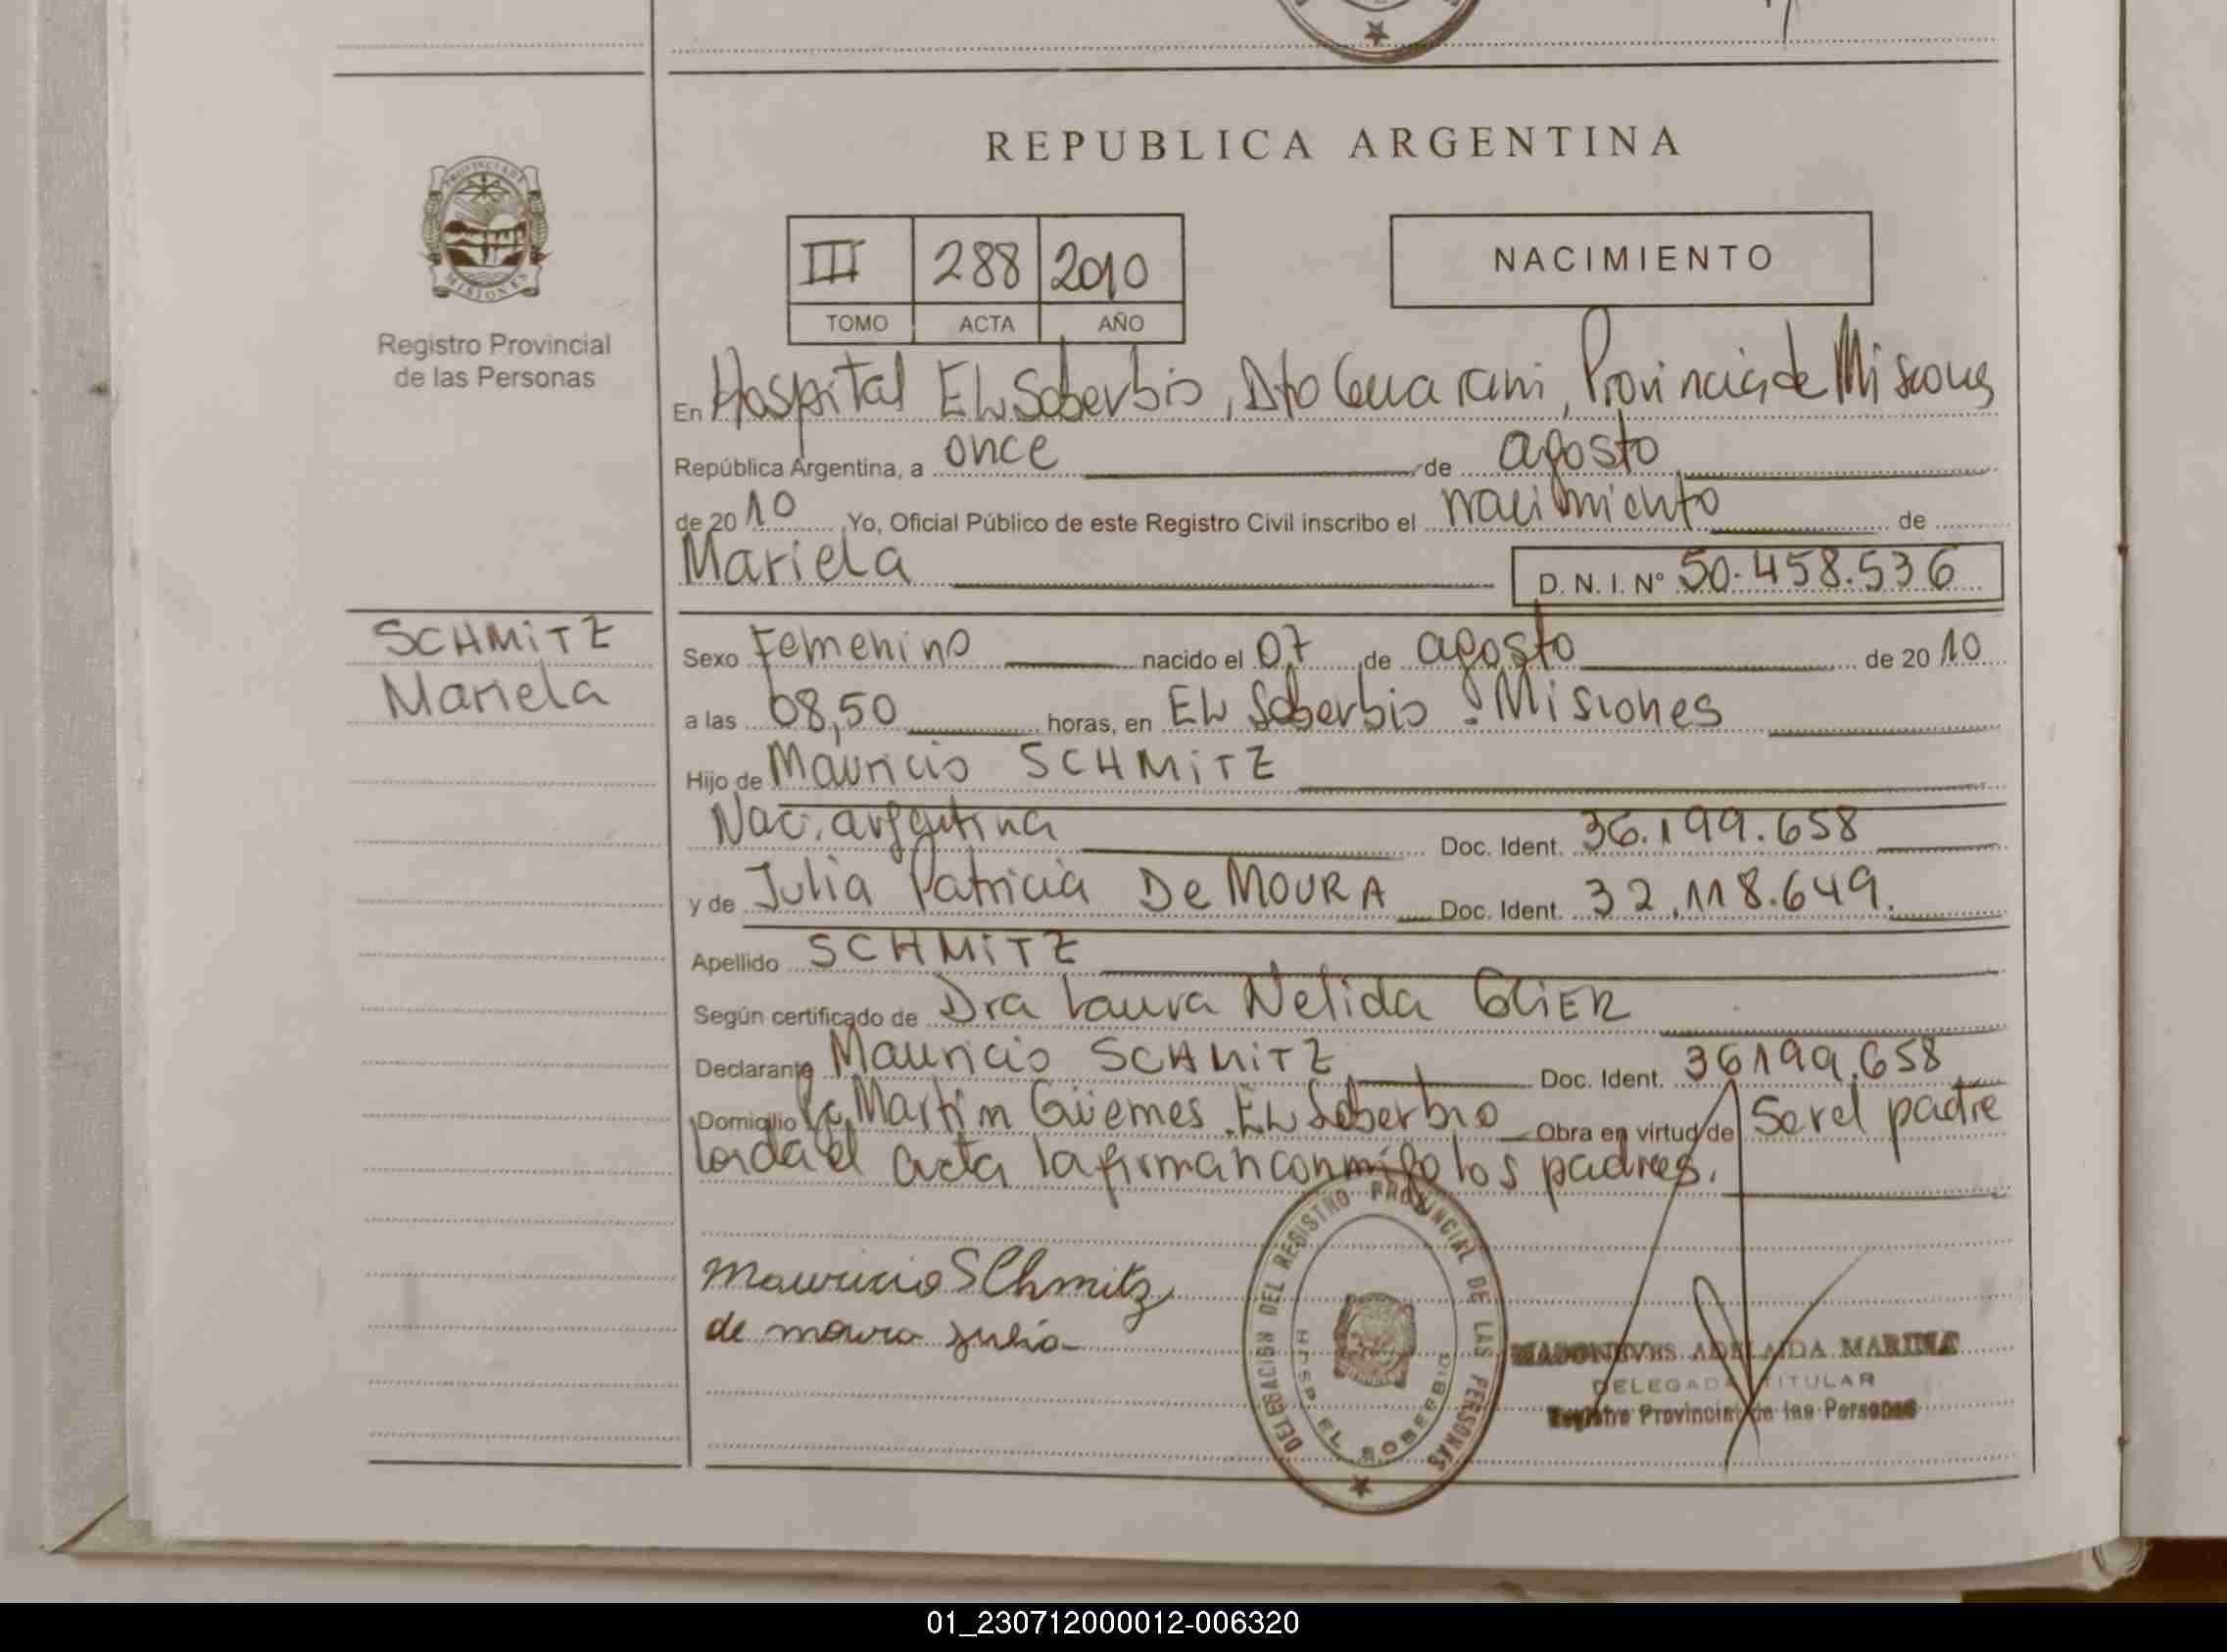 REPUBLICA ARGENTINA
PROVINCIA DE
MISIONES
Registro Provincial
de las Personas
III 288 2010
TOMO ACTA AÑO
NACIMIENTO
En Hospital EL Soberbio, Dto Guarani, Provincia de Misiones
República Argentina, a once de agosto
de 2010 Yo, Oficial Público de este Registro Civil inscribo el nacimiento de
Mariela D. N. I. Nº 50.458.536
SCHMITZ
Mariela
Sexo Femenino nacido el 07 de agosto de 2010
a las 08,50 horas, en EL Soberbio - Misiones
Hijo de Mauricio SCHMITZ
Nac. argentina Doc. Ident. 36.199.658
y de Julia Patricia De MOURA Doc. Ident. 32.118.649.
Apellido SCHMITZ
Según certificado de Dra Laura Nelida
Declarante Mauricio SCHMITZ Doc. Ident. 36199.658
Domicilio Martin Güemes. EL Soberbio Obra en virtud de Ser el padre
acta la firman conmigo los padres.
Mauricio SChmitz
de moura Julia
DELEGACION DEL REGISTRO PROVINCIAL DE LAS PERSONAS
HOSP. EL SOBERBIO
ADELAIDA MARINA
DELEGADA TITULAR
Registro Provincial de las Personas
01_230712000012-006320